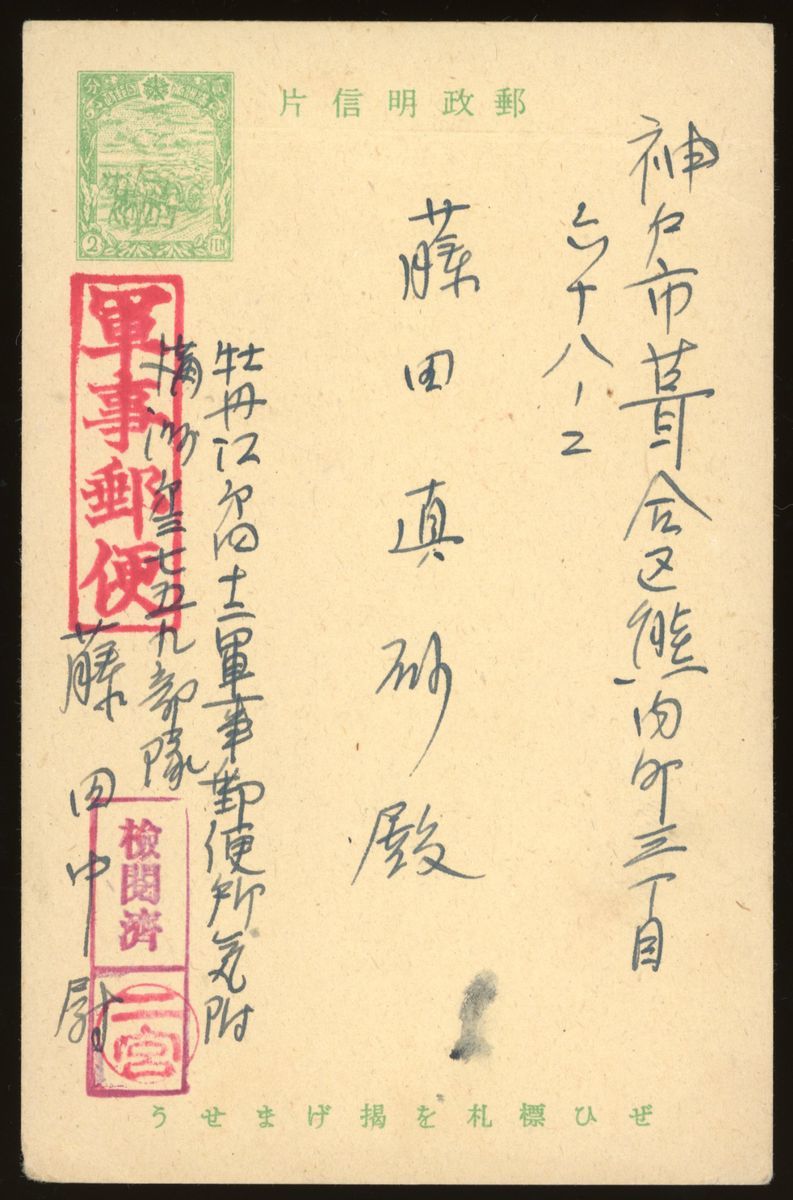 郵政明信片
貳分
2 FEN
神戸市葺合区熊内町三丁目
六十八ノ二
藤田真砂殿
牡丹江第四十二軍事郵便所気附
満洲第三七五九部隊
藤田中尉
軍事郵便
検閲済
二宮
ぜひ標札を掲げませう